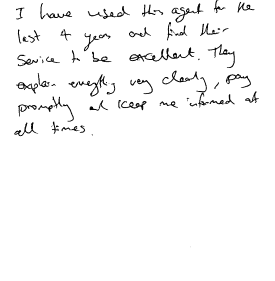 I have used this agent for the
last 4 years and find their
service to be excellent. They
explain everything very clearly, pay
promptly and keep me informed at
all times.